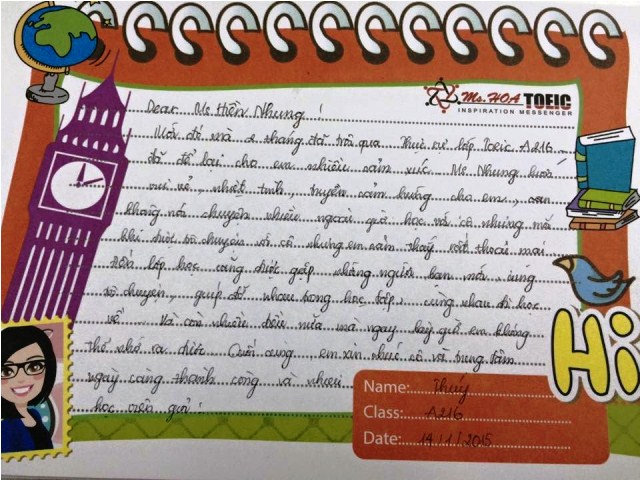 Ms. HOA TOEIC
INSPIRATION MESSENGER
Dear Ms thiên Nhung!
Mới đó mà 2 tháng đã trôi qua. Thực sự lớp Toeic A216
đã để lại cho em nhiều cảm xúc. Ms Nhung luôn
vui vẻ, nhiệt tình, truyền cảm hứng cho em, em
không nói chuyện nhiều ngoài giờ học với cô nhưng mà
khi được trò chuyện với cô nhưng em cảm thấy rất thoải mái
lớp học cũng được gặp những người bạn mới, cùng
trò chuyện, giúp đỡ nhau trong học tập, cùng nhau đi học
về. Và còn nhiều điều nữa mà ngay bây giờ em không
thể nhớ ra được. Cuối cùng em xin chúc cô và trung tâm
ngày càng thành công và nhiều
học viên giỏi!
Name: Thuý
Class: A216
Date: 14/1/2015
Hi